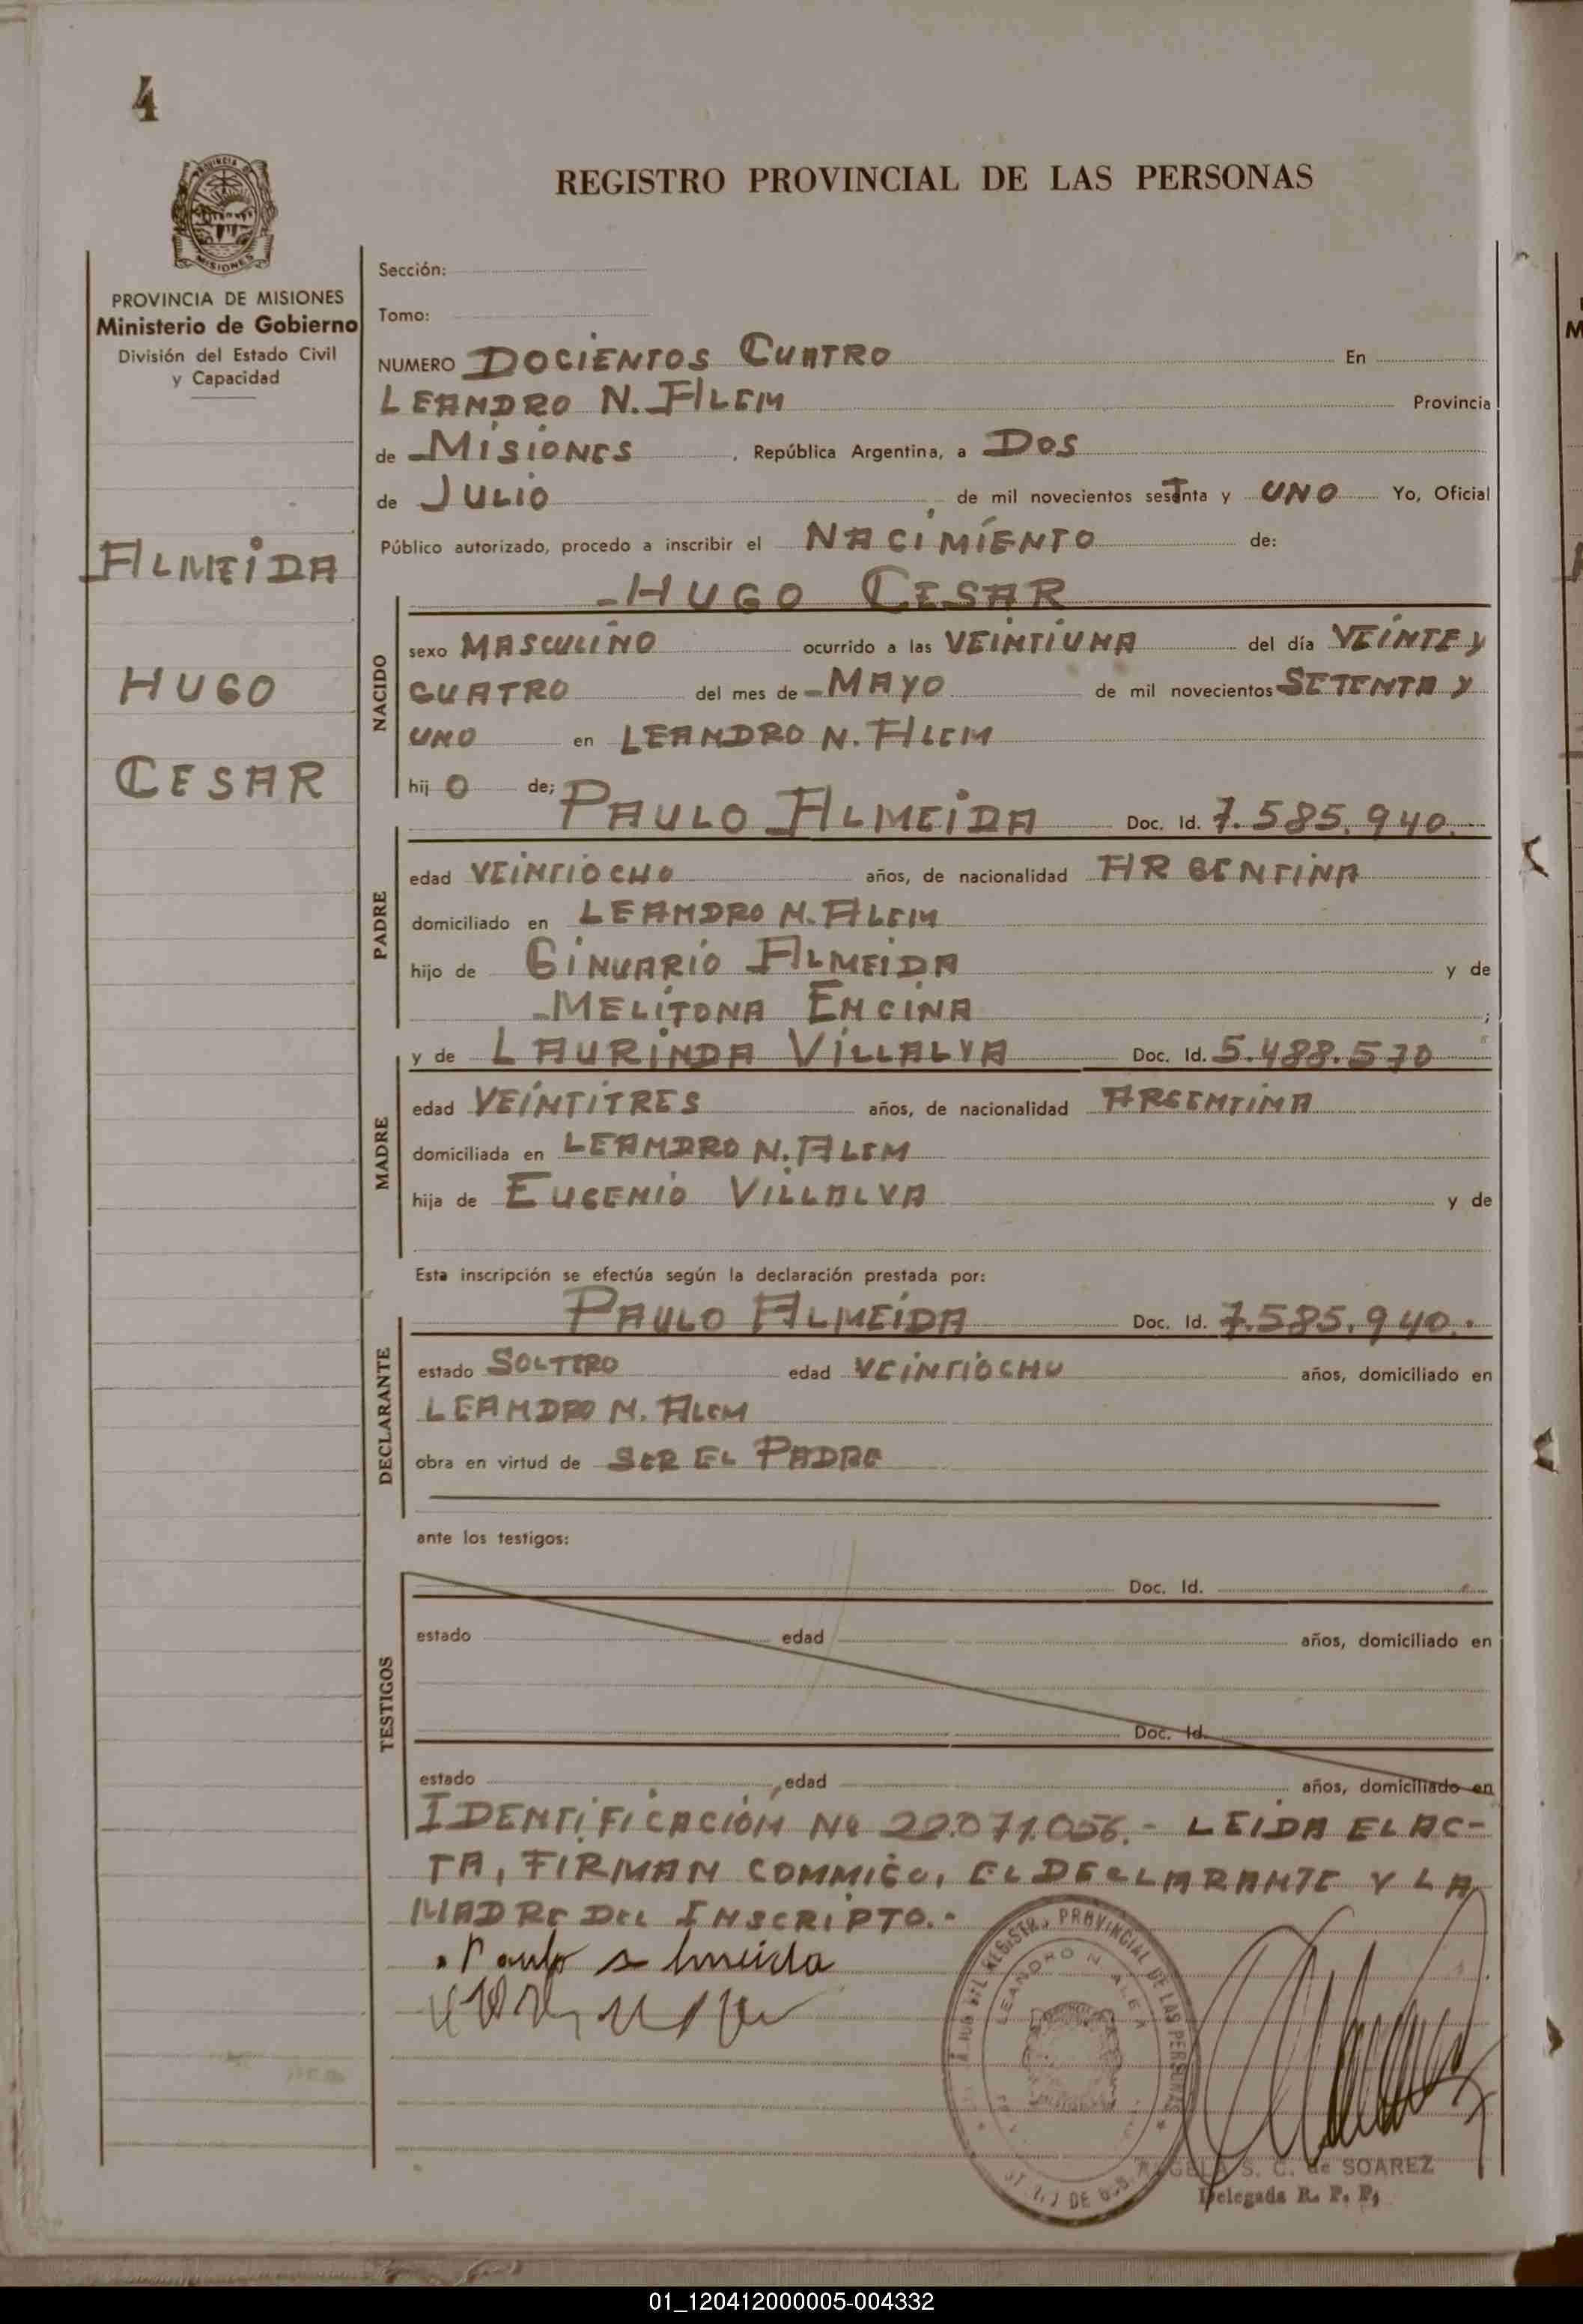 4
REGISTRO PROVINCIAL DE LAS PERSONAS
PROVINCIA
MISIONES
PROVINCIA DE MISIONES
Ministerio de Gobierno
División del Estado Civil
y Capacidad
ALMEIDA
HUGO
CESAR
Sección:
Tomo:
NUMERO DOCIENTOS CUATRO En
LEANDRO N. ALEM Provincia
de MISIONES, República Argentina, a DOS
de JULIO, de mil novecientos sesTnta y UNO Yo, Oficial
Público autorizado, procedo a inscribir el NACIMIENTO de:
HUGO CESAR
NACIDO
sexo MASCULINO ocurrido a las VEINTIUNA del día VEINTE Y
CUATRO del mes de MAYO de mil novecientos SETENTA Y
UNO en LEANDRO N. ALEM
hij O de; PAULO ALMEIDA Doc. Id. 7.585.940.
PADRE
edad VEINTIOCHO años, de nacionalidad ARGENTINA
domiciliado en LEANDRO N. ALEM
hijo de GINUARIO ALMEIDA y de
MELITONA ENCINA;
MADRE
y de LAURINDA VILLALVA Doc. Id. 5.488.570
edad VEINTITRES años, de nacionalidad ARGENTINA
domiciliada en LEANDRO N. ALEM
hija de EUGENIO VILLALVA y de
Esta inscripción se efectúa según la declaración prestada por:
PAULO ALMEIDA Doc. Id. 7.585.940.
DECLARANTE
estado SOLTERO edad VEINTIOCHO años, domiciliado en
LEANDRO N. ALEM
obra en virtud de SER EL PADRE
ante los testigos:
TESTIGOS
Doc. Id.
estado edad años, domiciliado en
Doc. Id.
estado edad años, domiciliado en
IDENTIFICACIÓN Nº 22.071.056.- LEIDA EL AC-
TA, FIRMAN CONMIGO, EL DECLARANTE Y LA
MADRE DEL INSCRIPTO.-
Paulo almeida
REGISTR. PROVINCIAL DE LAS PERSONAS
LEANDRO N ALEM
ANGELA S. C. de SOAREZ
Delegada R. P. P.
01_120412000005-004332